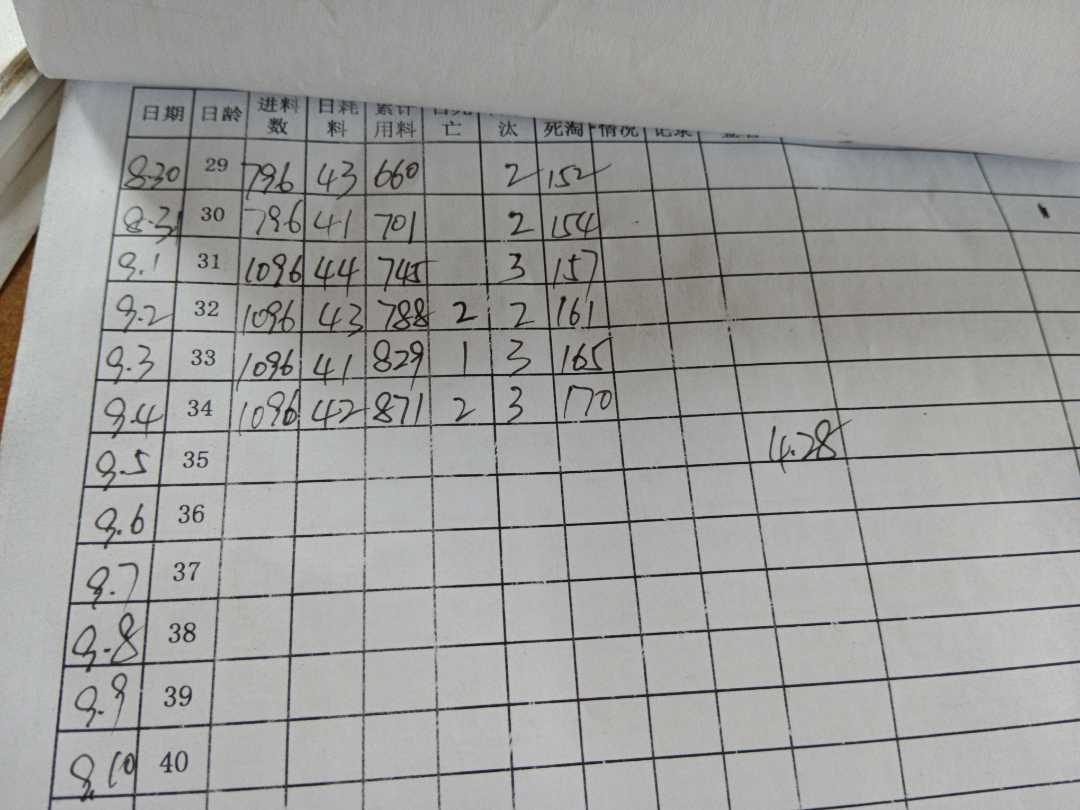 日期 日龄 进料数 日耗料 累计用料 亡 汰 死淘 情况 记录
8.30 29 796 43 660 2 152
8.31 30 796 41 701 2 154
9.1 31 1096 44 745 3 157
9.2 32 1096 43 788 2 2 161
9.3 33 1096 41 829 1 3 165
9.4 34 1096 42 871 2 3 170
4.28
9.5 35
9.6 36
9.7 37
9.8 38
9.9 39
9.10 40